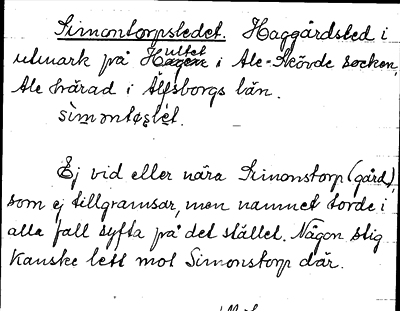 Simontorpsledet. Haggårdsled i
utmark på Hultet i Ale-Skövde socken,
Ale härad i Älfsborgs län.
Ej vid eller nära Simonstorp (gård),
som ej tillgränsar, men namnet torde i
alla fall syfta på det stället. Någon stig
kanske lett mot Simonstorp där.